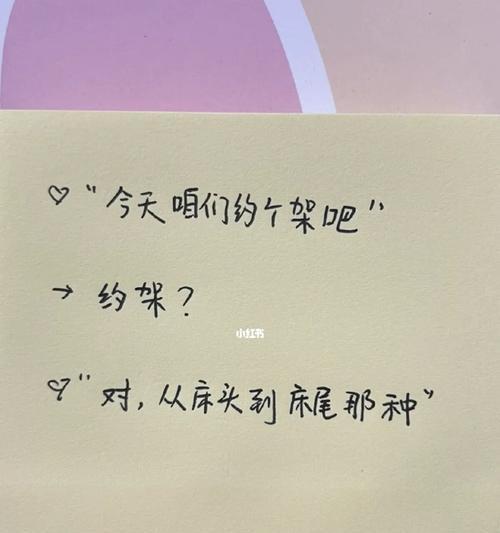 ♡“今天咱们约个架吧”
→ 约架？
小红书
♡“对，从床头到床尾那种”